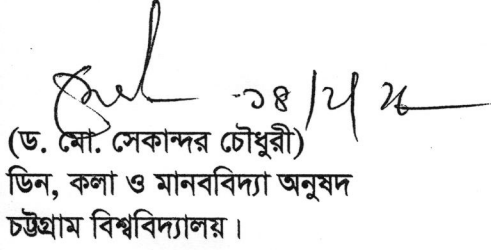 (ড. মো. সেকান্দর চৌধুরী)
ডিন, কলা ও মানববিদ্যা অনুষদ
চট্টগ্রাম বিশ্ববিদ্যালয়।